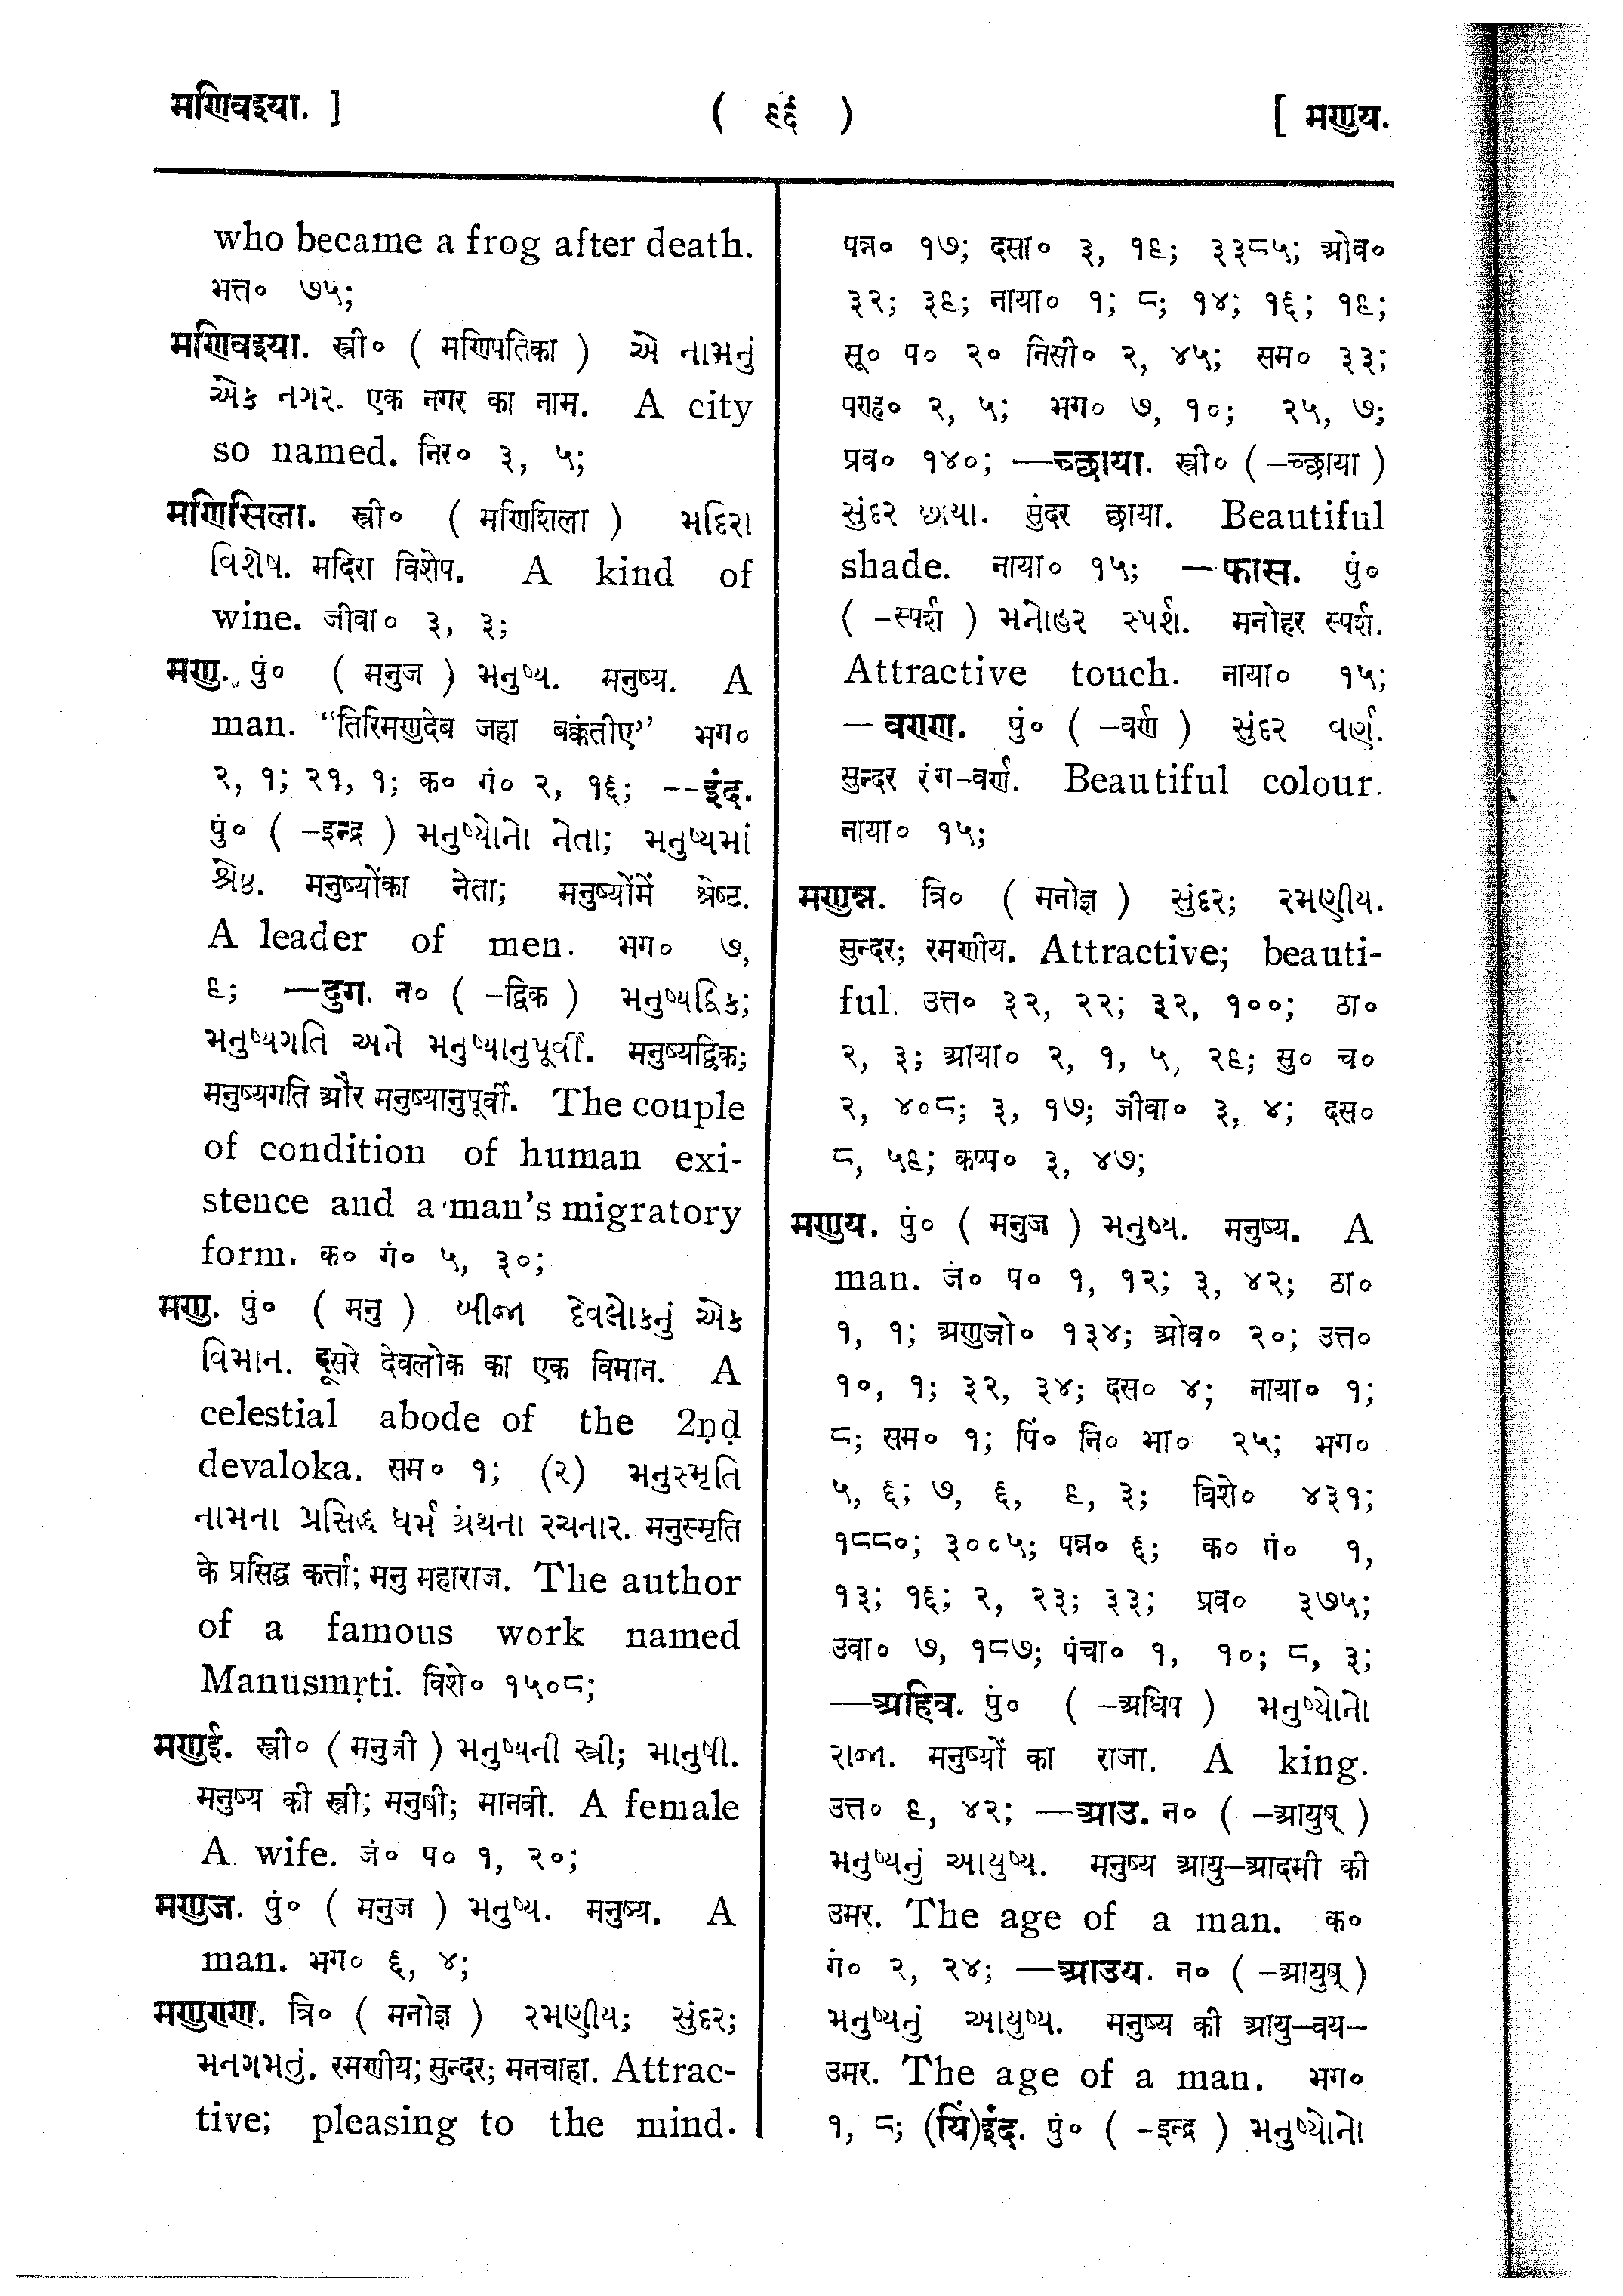 मणिवइया. ]
( ९६ )
[ मणुय.
who became a frog after death.
भत्त० ७५;
मणिवइया. स्त्री० ( मणिपतिका ) એ નામનું
એક નગર. एक नगर का नाम. A city
so named. निर० ३, ५;
मणिसिला. स्त्री० ( मणिशिला ) મદિરા
વિશેષ. मदिरा विशेष. A kind of
wine. जीवा० ३, ३;
मणु. पुं० ( मनुज ) મનુષ્ય. मनुष्य. A
man. “तिरिमणुदेब जहा बक्कंतीए” भग०
२, १; २१, १; क० गं० २, १६; --इंद.
पुं० ( -इन्द्र ) મનુષ્યોનો નેતા; મનુષ્યમાં
શ્રેષ્ઠ. मनुष्योंका नेता; मनुष्योंमें श्रेष्ट.
A leader of men. भग० ७,
९; —दुग. न० ( -द्विक ) મનુષ્યદ્વિક;
મનુષ્યગતિ અને મનુષ્યાનુપૂર્વી. मनुष्यद्विक;
मनुष्यगति और मनुष्यानुपूर्वी. The couple
of condition of human exi-
stence and a man's migratory
form. क० गं० ५, ३०;
मणु. पुं० ( मनु ) બીજા દેવલોકનું એક
વિમાન. दूसरे देवलोक का एक विमान. A
celestial abode of the 2ṇḍ
devaloka. सम० १; (२) મનુસ્મૃતિ
નામના પ્રસિદ્ધ ધર્મ ગ્રંથના રચનાર. मनुस्मृति
के प्रसिद्ध कर्त्ता; मनु महाराज. The author
of a famous work named
Manusmṛti. विशे० १५०८;
मणुई. स्त्री० ( मनुत्री ) મનુષ્યની સ્ત્રી; માનુષી.
मनुष्य की स्त्री; मनुषी; मानवी. A female
A wife. जं० प० १, २०;
मणुज. पुं० ( मनुज ) મનુષ્ય. मनुष्य. A
man. भग० ६, ४;
मणुराण. त्रि० ( मनोज्ञ ) રમણીય; સુંદર;
મનગમતું. रमणीय; सुन्दर; मनचाहा. Attrac-
tive; pleasing to the mind.
पन्न० १७; दसा० ३, १९; ३३८५; ओव०
३२; ३९; नाया० १; ८; १४; १६; १९;
सू० प० २० निसी० २, ४५; सम० ३३;
पराह० २, ५; भग० ७, १०; २५, ७;
प्रव० १४०; —च्छाया. स्त्री० ( -च्छाया )
સુંદર છાયા. सुंदर छाया. Beautiful
shade. नाया० १५; —फास. पुं०
( -स्पर्श ) મનોહર સ્પર્શ. मनोहर स्पर्श.
Attractive touch. नाया० १५;
—वराण. पुं० ( -वर्ण ) સુંદર વર્ણ.
सुन्दर रंग-वर्ण. Beautiful colour.
नाया० १५;
मणुन्न. त्रि० ( मनोज्ञ ) સુંદર; રમણીય.
सुन्दर; रमणीय. Attractive; beauti-
ful. उत्त० ३२, २२; ३२, १००; ठा०
२, ३; आया० २, १, ५, २९; सु० च०
२, ४०८; ३, १७; जीवा० ३, ४; दस०
८, ५९; कप्प० ३, ४७;
मणुय. पुं० ( मनुज ) મનુષ્ય. मनुष्य. A
man. जं० प० १, १२; ३, ४२; ठा०
१, १; अणुजो० १३४; ओव० २०; उत्त०
१०, १; ३२, ३४; दस० ४; नाया० १;
८; सम० १; पिं० नि० भा० २५; भग०
५, ६; ७, ६, ९, ३; विशे० ४३१;
१८८०; ३००५; पन्न० ६; क० गं० १,
१३; १६; २, २३; ३३; प्रव० ३७५;
उवा० ७, १८७; पंचा० १, १०; ८, ३;
—अहिव. पुं० ( -अधिप ) મનુષ્યોનો
રાજા. मनुष्यों का राजा. A king.
उत्त० ९, ४२; —आउ. न० ( -आयुष् )
મનુષ્યનું આયુષ્ય. मनुष्य आयु-आदमी की
उमर. The age of a man. क०
गं० २, २४; —आउय. न० ( -आयुष् )
મનુષ્યનું આયુષ્ય. मनुष्य की आयु-वय-
उमर. The age of a man. भग०
१, ८; (यिं)इंद. पुं० ( -इन्द्र ) મનુષ્યોનો